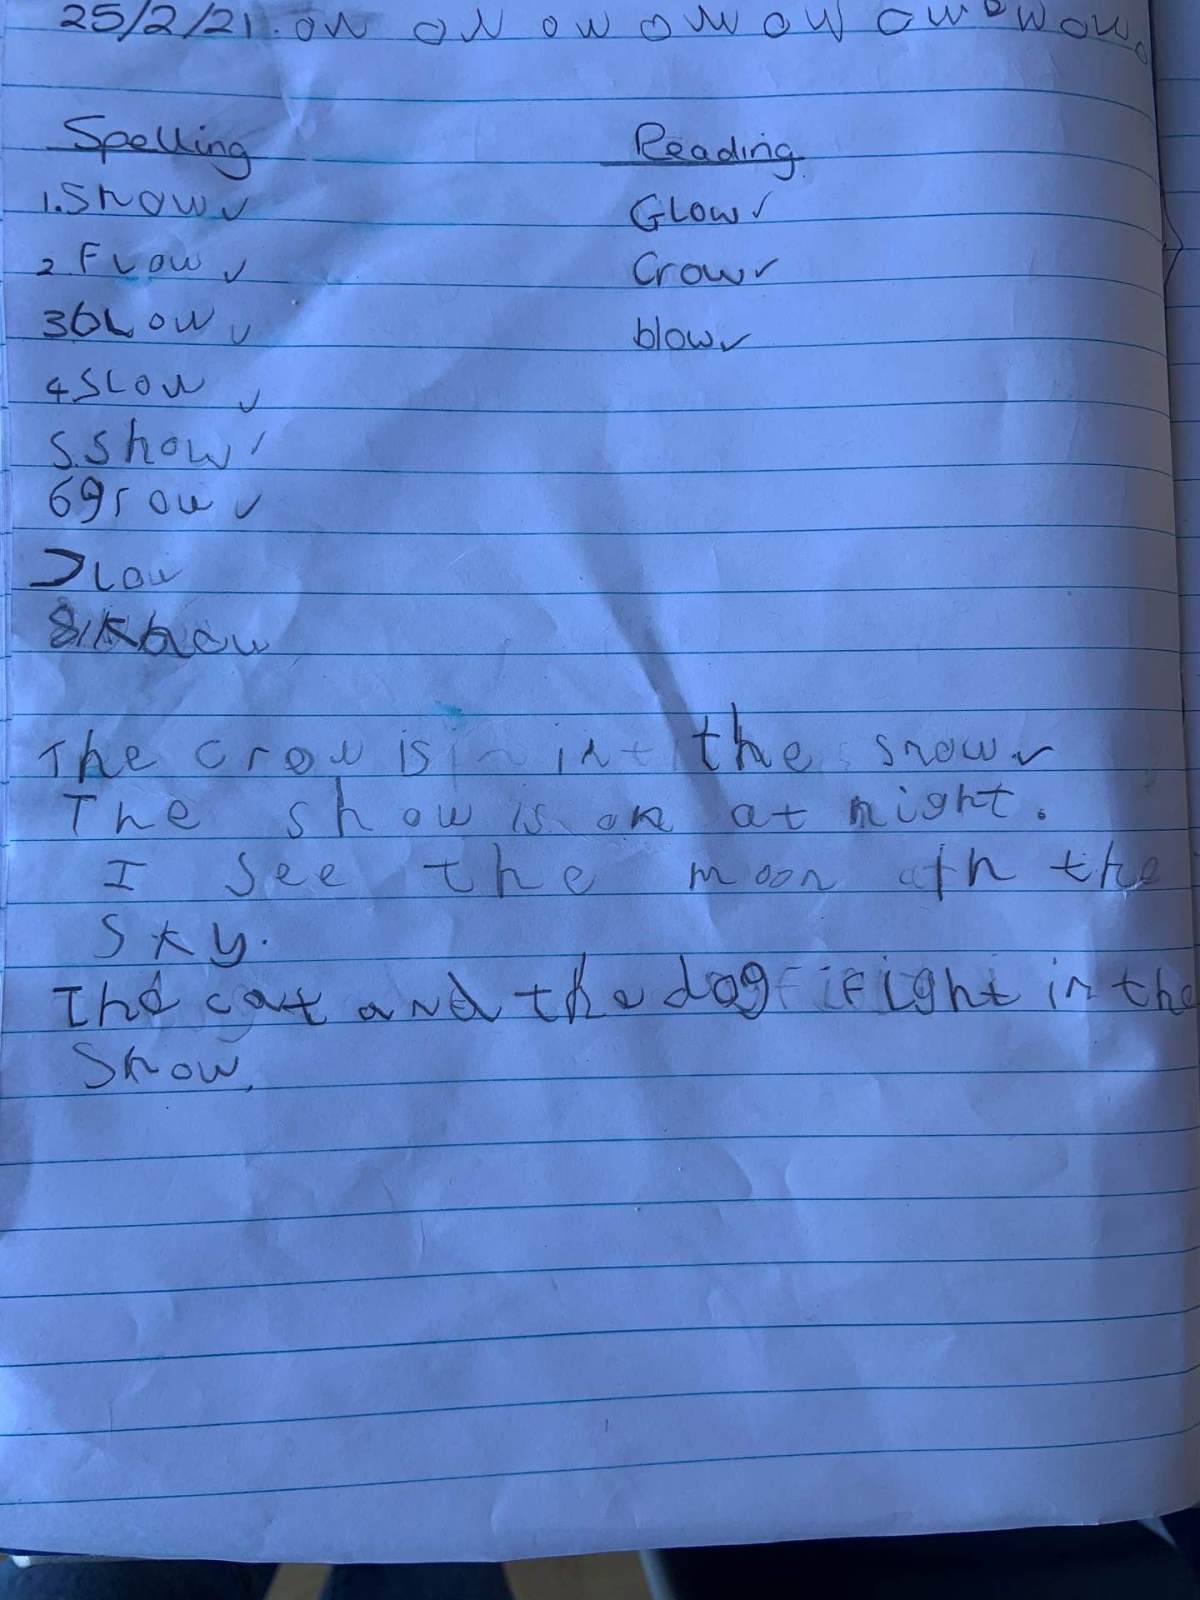 25/2/21. ow ow ow ow ow ow ow ow.
Spelling
Reading
1. Snow ✓
Glow ✓
2 Flow ✓
Crow ✓
3 bLow ✓
blow ✓
4 Slow ✓
5. Show ✓
6 grow ✓
7 Low
8. Know
The crow is in the snow ✓
The show is on at night.
I see the moon in the
sky.
The cat and the dog fight in the
Snow.